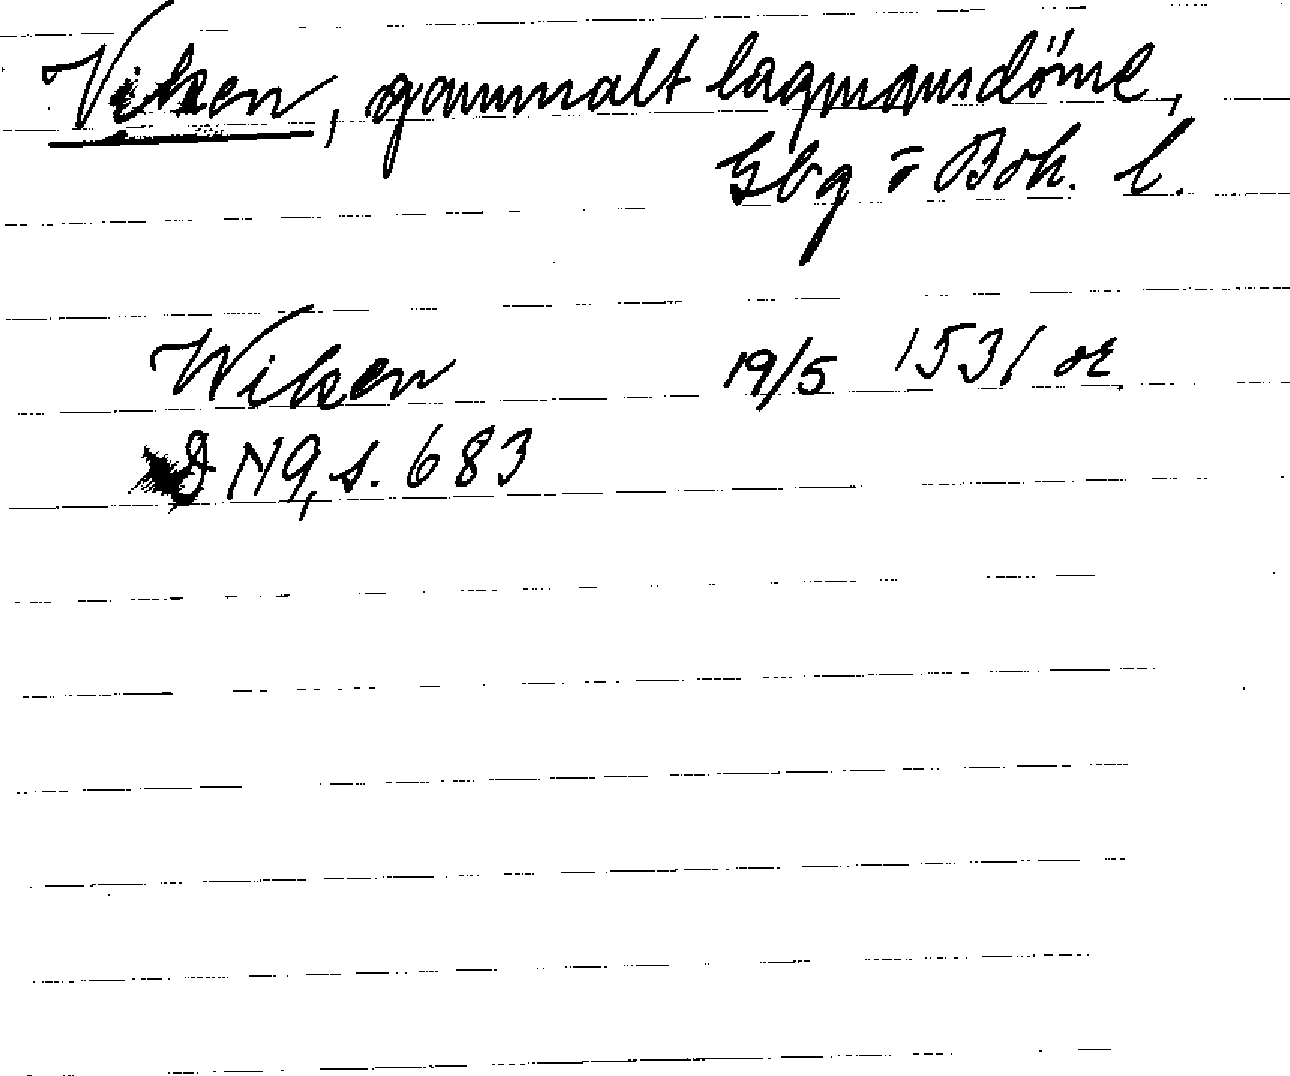 Viken, gammalt lagmansdöme,
Gbg o Boh. l.
Wiken 19/5 1531 or.
DN 9, s. 683